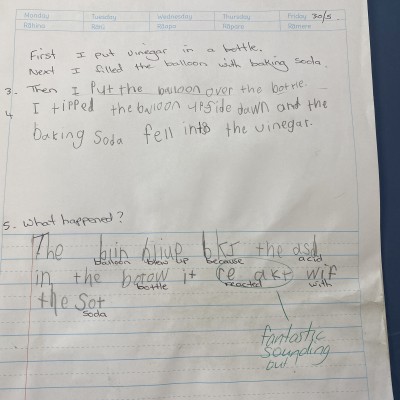 Monday Tuesday Wednesday Thursday Friday 30/5.
Rāhina Rātū Rāapa Rāpare Rāmere
First I put vinegar in a bottle.
Next I filled the balloon with baking soda.
3. Then I Put the balloon over the bottle.
4. I tipped the balloon upside down and the
baking Soda fell into the vinegar.
5. What happened?
The blin bliue bkr the asd
balloon blew up because acid
in the botow it re akt wif
bottle reacted with
the Sot
soda
fantastic
sounding
out